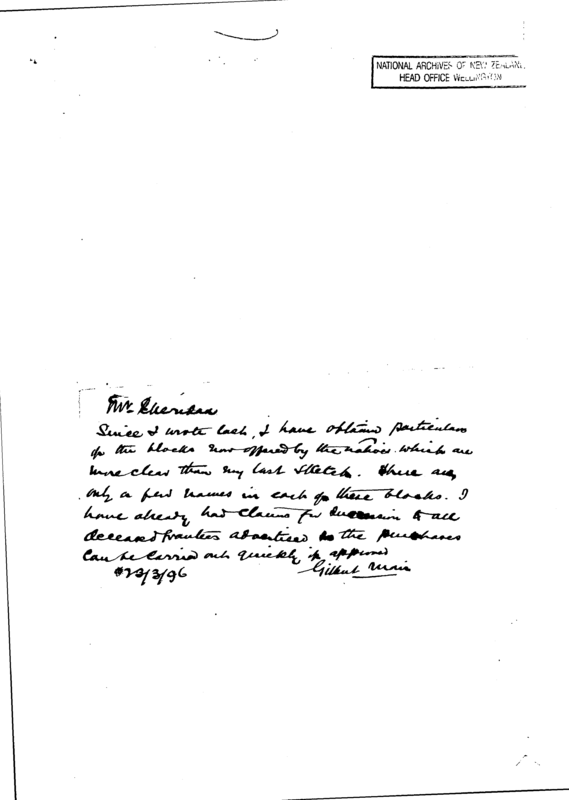 NATIONAL ARCHIVES OF NEW ZEALAND,
HEAD OFFICE WELLINGTON
Mr Sheridan
Since I wrote last, I have obtained particulars
of the blocks now offered by the natives which are
more clear than my last sketch. There are
only a few names in each of these blocks. I
have already had claims for succession to all
deceased grantees advertised so the purchases
can be carried out quickly if approved
23/3/96 Gilbert Mair